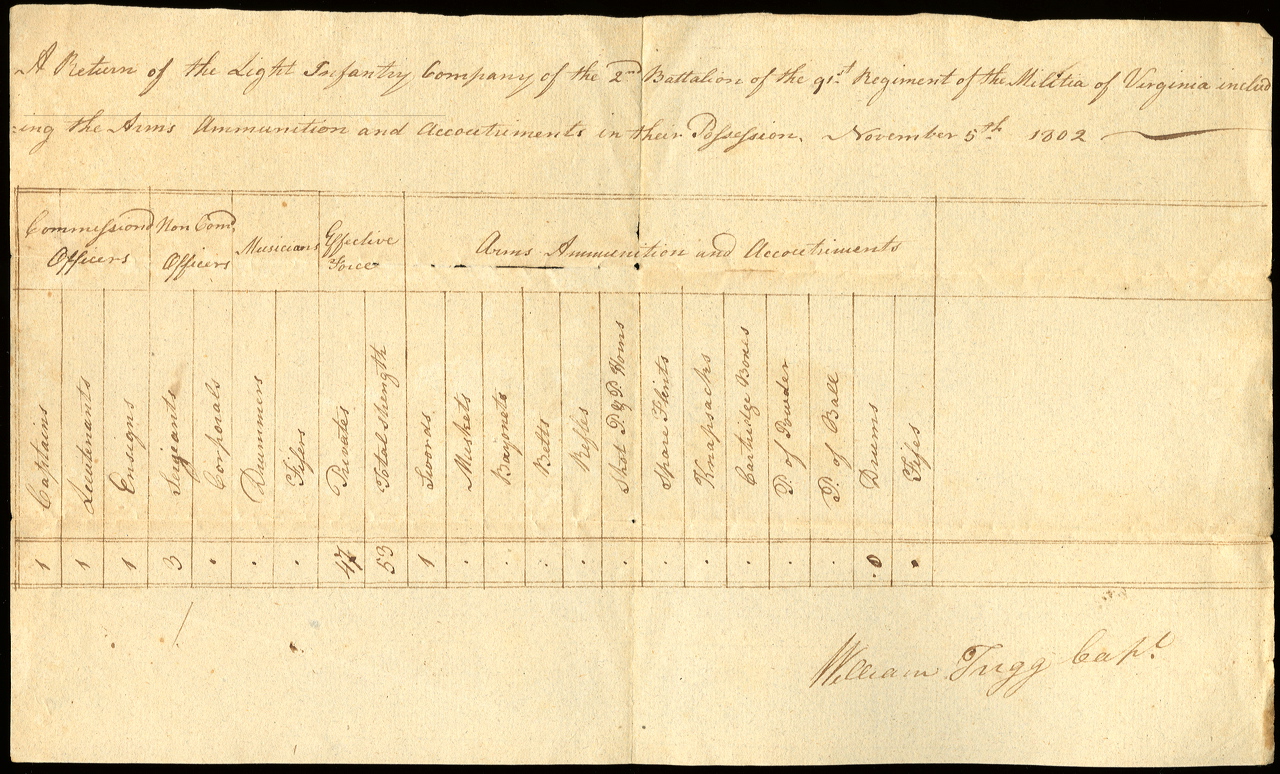 A Return of the Light Infantry Company of the 2nd Battalion of the 91st Regiment of the Militia of Virginia includ
=ing the Arms Ammunition and Accoutriments in their Possession. November 5th 1802
Commissiond Officers
Non Comd Officers
Musicians
Effective Force
Arms Ammunition and Accoutriments
Captains
Lieutenants
Ensigns
Serjeants
Corporals
Drummers
Fifers
Privates
Total strength
Swords
Muskets
Bayonets
Belts
Rifles
Shot P. & P. Horns
Spare Flints
Knapsacks
Cartridge Boxes
P. of Powder
P. of Ball
Drums
Fifes
1 1 1 3 . . . 47 53 1 . . . . . . . . . . 0 .
William Capt